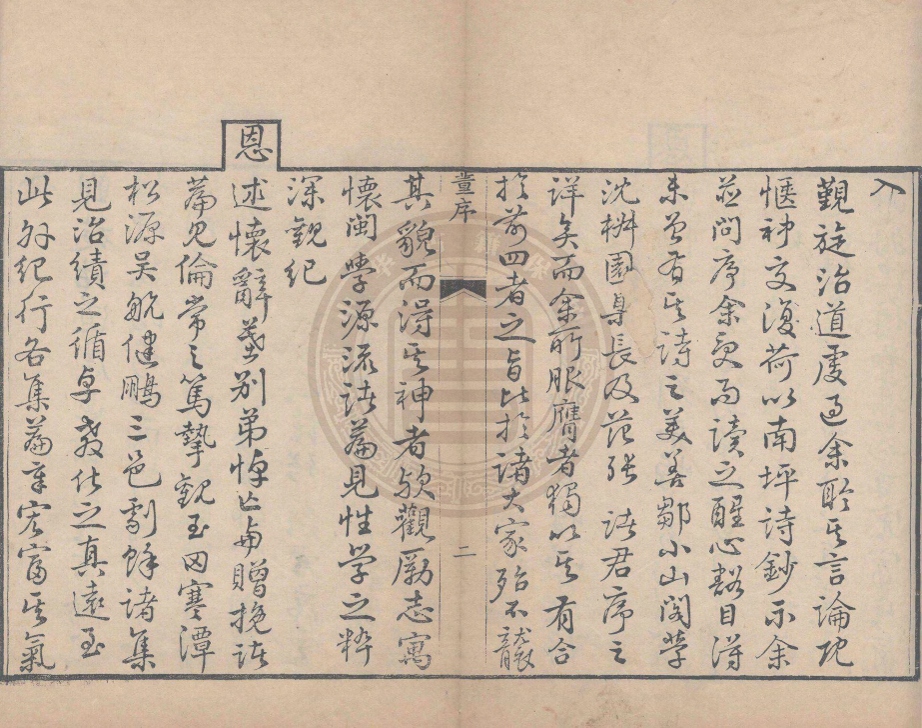 入
覲旋治道虔過余聆其言論地
愜神交復荷以南坪詩鈔示余
並問序余受而讀之醒心豁目得
未曾有其詩之美善鄒小山閣學
沈椒園臬長及范張諸君序之
詳矣而余所服膺者獨以其有合
於前四者之旨比於諸大家殆不襲
董序
二
其貌而得其神者歟觀勵志寓
懷閩學源流諸篇見性學之粹
深觀紀
恩
述懷辭墓別弟悼亡與贈挽諸
篇見倫常之篤摯觀玉田寒潭
松源吳航健鵬三邑劍蜉諸集
見治績之循卓教化之真遠至
此外紀行各集篇章宏富其氣